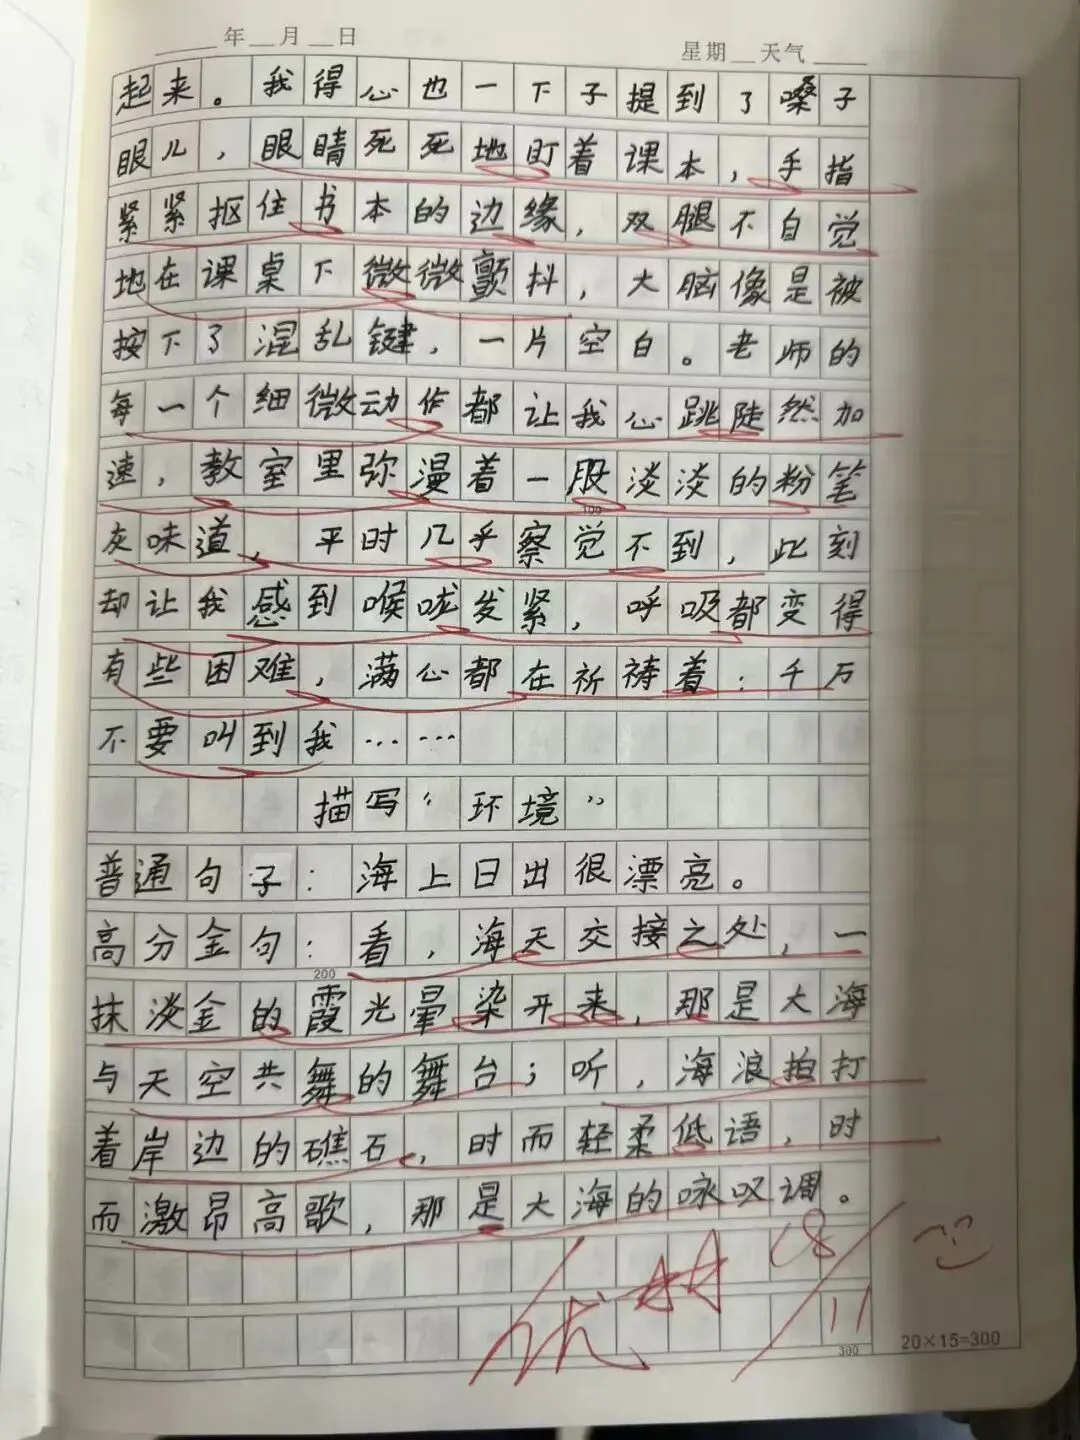 ____年__月__日 星期__天气____
起来。我得心也一下子提到了嗓子
眼儿，眼睛死死地盯着课本，手指
紧紧抠住书本的边缘，双腿不自觉
地在课桌下微微颤抖，大脑像是被
按下了混乱键，一片空白。老师的
每一个细微动作都让我心跳陡然加
速，教室里弥漫着一股淡淡的粉笔
100
灰味道，平时几乎察觉不到，此刻
却让我感到喉咙发紧，呼吸都变得
有些困难，满心都在祈祷着：千万
不要叫到我……
描写“环境”
普通句子：海上日出很漂亮。
高分金句：看，海天交接之处，一
200
抹淡金的霞光晕染开来，那是大海
与天空共舞的舞台；听，海浪拍打
着岸边的礁石，时而轻柔低语，时
而激昂高歌，那是大海的咏叹调。
优 18/11
300
20×15=300